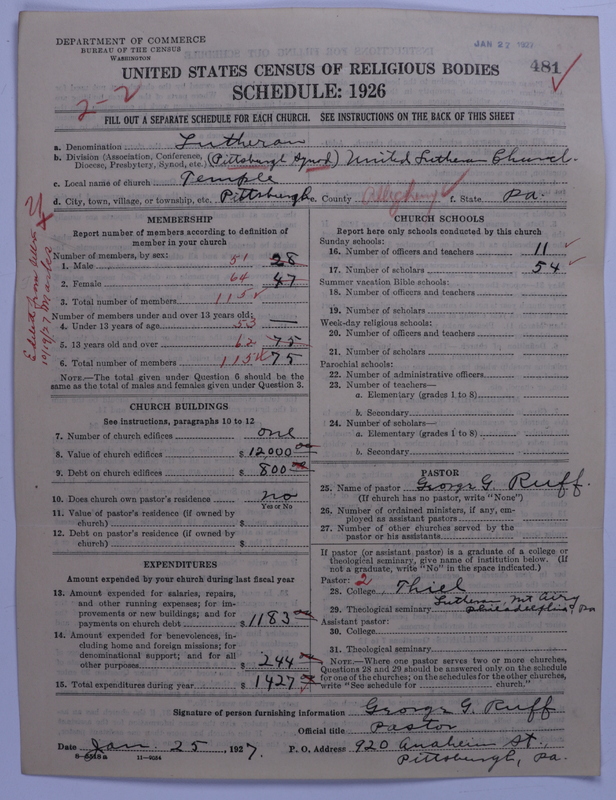 DEPARTMENT OF COMMERCE
BUREAU OF THE CENSUS
WASHINGTON
JAN 27 1927
481
UNITED STATES CENSUS OF RELIGIOUS BODIES
SCHEDULE: 1926
2-2
FILL OUT A SEPARATE SCHEDULE FOR EACH CHURCH. SEE INSTRUCTIONS ON THE BACK OF THIS SHEET
a. Denomination Lutheran
b. Division (Association, Conference, Diocese, Presbytery, Synod, etc.) (Pittsburgh Synod) United Lutheran Church.
c. Local name of church Temple
d. City, town, village, or township, etc. Pittsburgh e. County Allegheny f. State Pa.
MEMBERSHIP
Report number of members according to definition of
member in your church
Number of members, by sex:
1. Male 51 28
2. Female 64 47
3. Total number of members 115
Number of members under and over 13 years old:
4. Under 13 years of age 53 —
5. 13 years old and over 62 75
6. Total number of members 115 75
NOTE.—The total given under Question 6 should be the
same as the total of males and females given under Question 3.
CHURCH BUILDINGS
See instructions, paragraphs 10 to 12
7. Number of church edifices one
8. Value of church edifices $ 12,000 00
9. Debt on church edifices $ 800
10. Does church own pastor's residence no
Yes or No
11. Value of pastor's residence (if owned by
church) $
12. Debt on pastor's residence (if owned by
church) $
EXPENDITURES
Amount expended by your church during last fiscal year
13. Amount expended for salaries, repairs,
and other running expenses; for im-
provements or new buildings; and for
payments on church debt $ 1183
14. Amount expended for benevolences, in-
cluding home and foreign missions; for
denominational support; and for all
other purposes $ 244
15. Total expenditures during year $ 1427
CHURCH SCHOOLS
Report here only schools conducted by this church
Sunday schools:
16. Number of officers and teachers 11
17. Number of scholars 54
Summer vacation Bible schools:
18. Number of officers and teachers
19. Number of scholars
Week-day religious schools:
20. Number of officers and teachers
21. Number of scholars
Parochial schools:
22. Number of administrative officers
23. Number of teachers—
a. Elementary (grades 1 to 8)
b. Secondary
24. Number of scholars—
a. Elementary (grades 1 to 8)
b. Secondary
PASTOR
25. Name of pastor George G. Ruff.
(If church has no pastor, write "None")
26. Number of ordained ministers, if any, em-
ployed as assistant pastors
27. Number of other churches served by the
pastor or his assistants
If pastor (or assistant pastor) is a graduate of a college or
theological seminary, give name of institution below. (If
not a graduate, write "No" in the space indicated.)
Pastor: 2
28. College Thiel
29. Theological seminary Lutheran, Mt Airy
Philadelphia, Pa
Assistant pastor:
30. College
31. Theological seminary
NOTE.—Where one pastor serves two or more churches,
Questions 28 and 29 should be answered only on the schedule
for one of the churches; on the schedules for the other churches,
write "See schedule for church."
Signature of person furnishing information George G. Ruff
Official title Pastor
Date Jan. 25, 1927. P. O. Address 920 Anaheim St.,
Pittsburgh, Pa.
11—9034